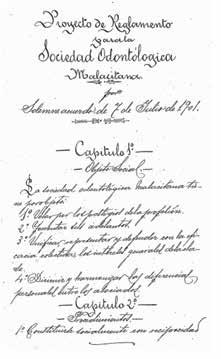 Proyecto de Reglamento
para la
Sociedad Odontológica
Malacitana
por
Solemne acuerdo de 7 de Julio de 1901.
Capitulo 1º
Objeto Social
La sociedad odontológica malacitana tie-
ne por objeto:
1º Velar por los prestigios de la profesión.
2º Fomentar sus adelantos.
3º Unificar, representar y defender con la efi-
cacia colectiva los intereses generales de la cla-
se.
4º Dirimir y harmonizar las diferencias
personales entre los asociados
Capitulo 2º
Procedimientos
1º Constituirse socialmente con reciprocidad